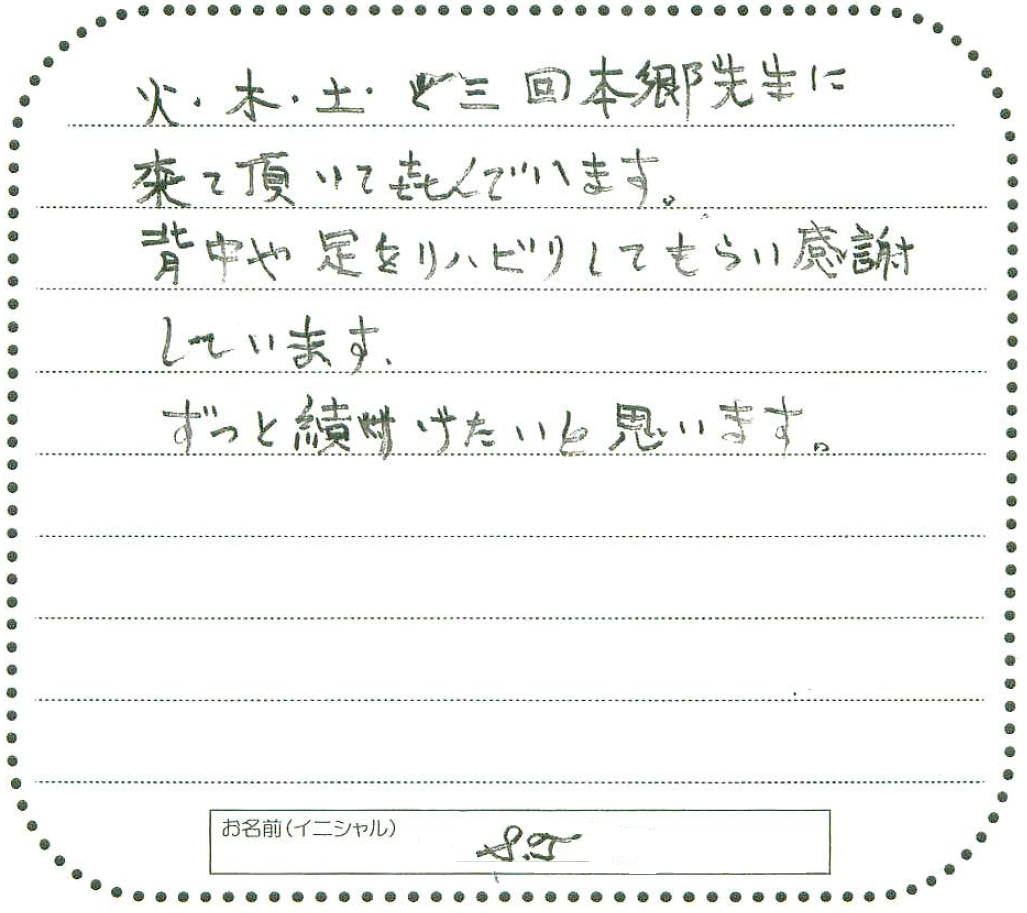 火・木・土・と三回本郷先生に
来て頂いて㐂んでいます。
背中や足をリハビリしてもらい感謝
しています。
ずっと続けたいと思います。
お名前(イニシャル)
S.T